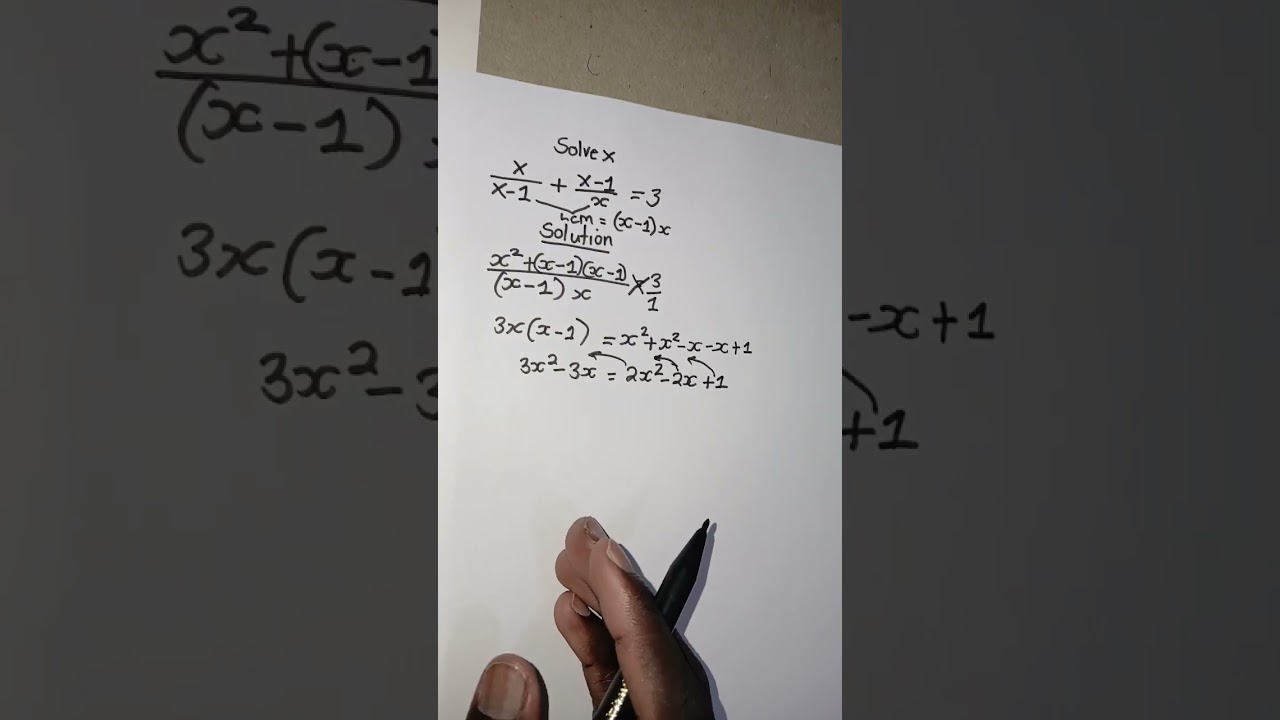 Solve x
x/(x-1) + (x-1)/x = 3
LCM = (x-1)x
Solution
(x²+(x-1)(x-1))/((x-1)x) = 3/1
3x(x-1) = x²+x²-x-x+1
3x²-3x = 2x²-2x+1